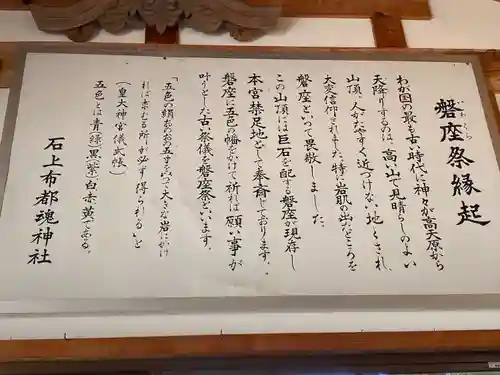 磐座祭縁起
いわくら
わが国の最も古い時代に神々が高天原から
天降りするのは、高い山で見晴しのよい
山頂、人がたやすく近づけない地とされ、
大変信仰されました。特に岩肌の出たところを
磐座といって畏敬しました。
この山頂には巨石を配する磐座が現存し
本宮禁足地として奉斎しております。
磐座に五色の幡をかけて祈れば願い事が
叶うとした古い祭儀を磐座祭といいます。
「五色の絹おのおの五すんづつ大きな岩にかけ
れば求むる所が必ず得られる」と
(皇大神宮儀式帳)
五色とは青(緑)黒(紫)白赤黄である。
石上布都魂神社